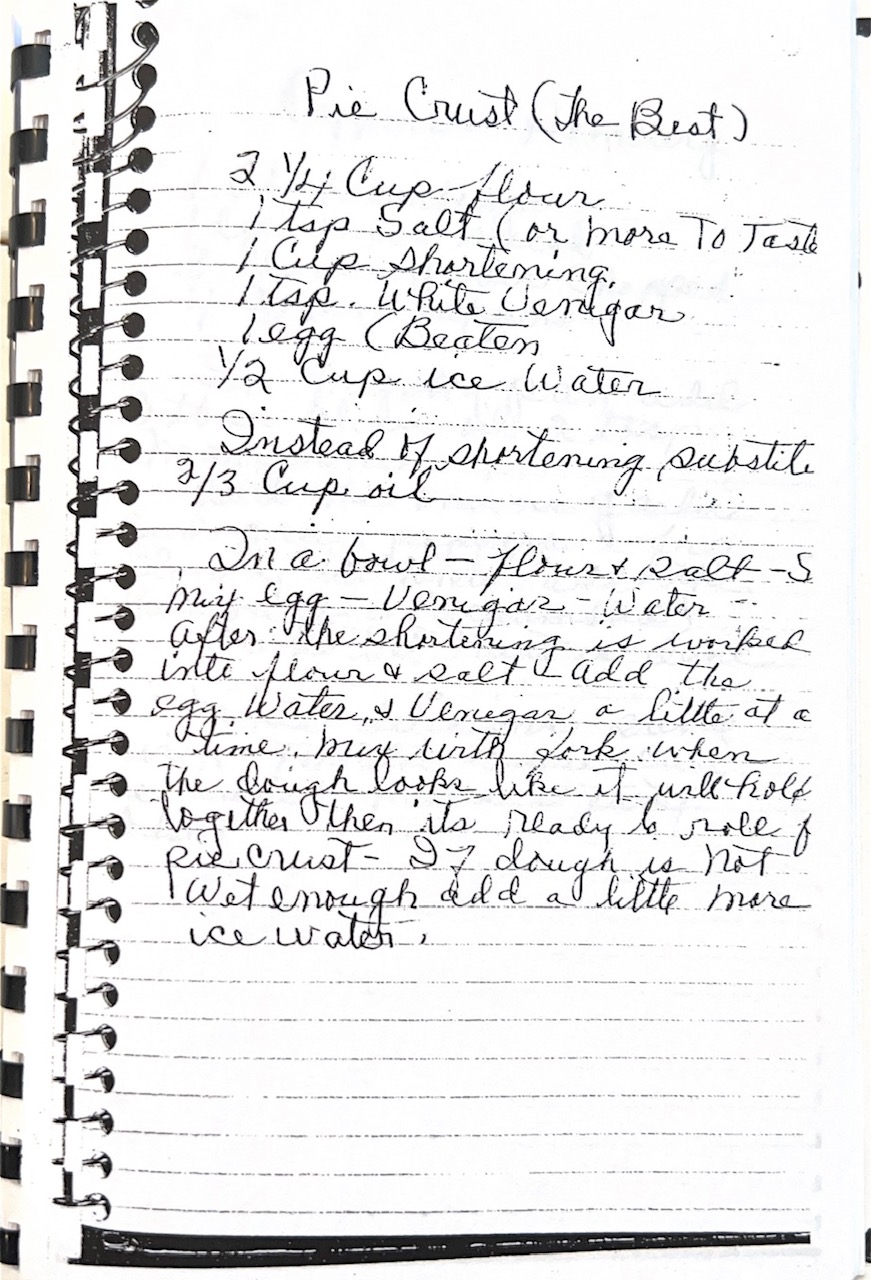 Pie Crust (The Best)
2 1/4 Cup flour
1 tsp Salt (or more To Taste
1 Cup shortening.
1 tsp. White Venigar
1 egg (Beaten
1/2 Cup ice Water
Instead of shortening substite
2/3 Cup oil
In a bowl - flour & salt - S
mix egg - Venigar - Water -
after the shortening is worked
into flour & salt - add the
egg, Water, & Venegar a little at a
time. mix with fork. when
the dough looks like it will hold
together then its ready to roll f
pie crust - If dough is not
Wet enough add a little more
ice water.